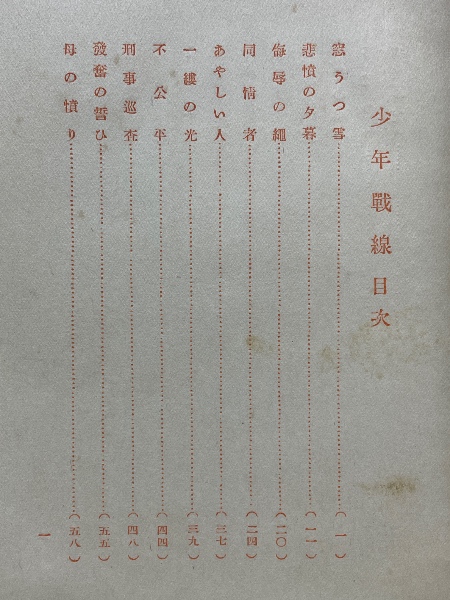 少年戰線目次
窓うつ雪……(一)
悲憤の夕暮……(一一)
侮辱の繩……(二〇)
同情者……(二四)
あやしい人……(三七)
一縷の光……(三九)
不公平……(四四)
刑事巡査……(四八)
發奮の誓ひ……(五五)
母の憤り……(五八)
一